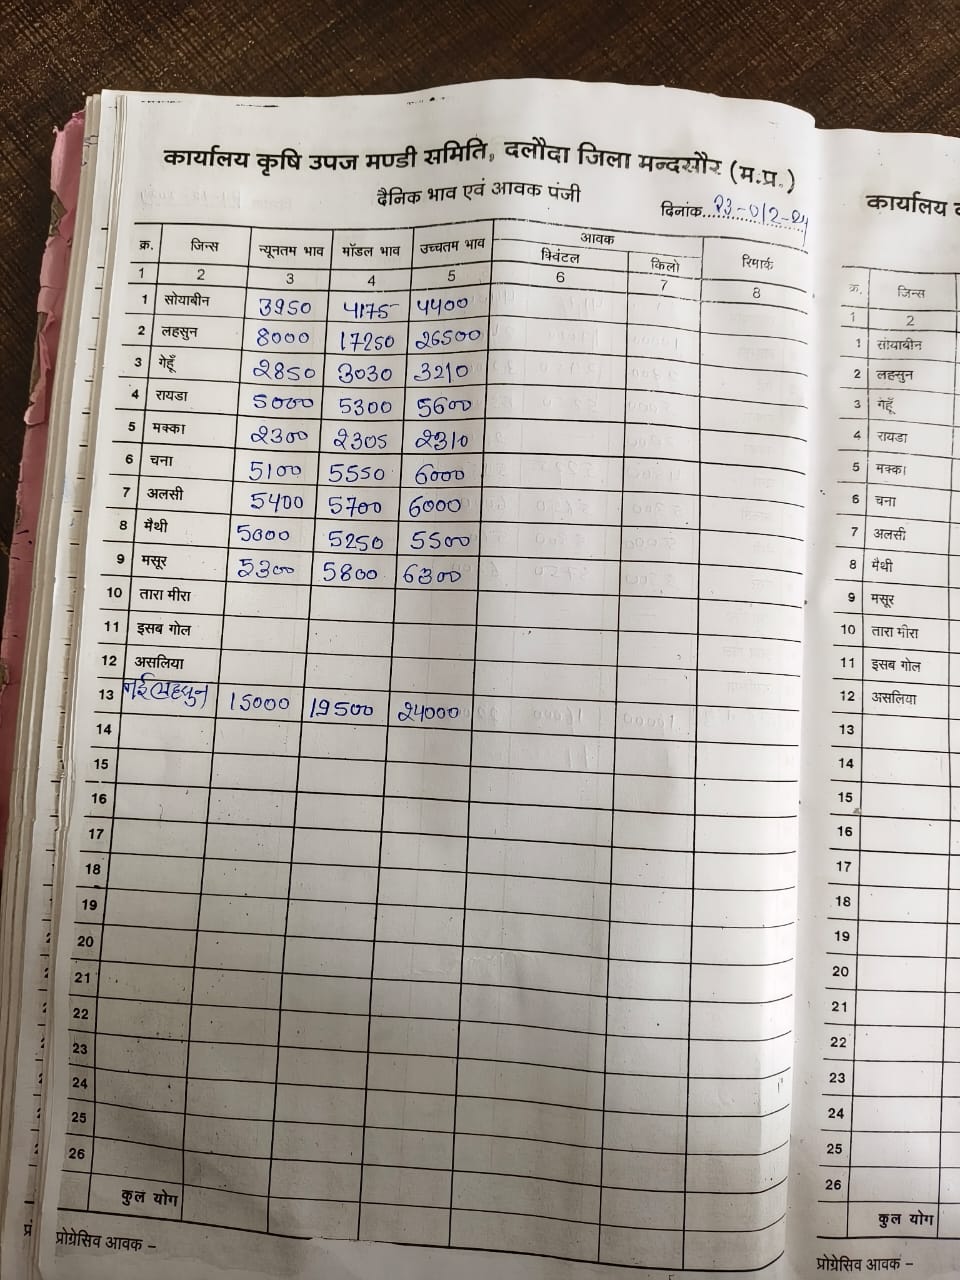 कार्यालय कृषि उपज मण्डी समिति, दलौदा जिला मन्दसौर (म.प्र.)
दैनिक भाव एवं आवक पंजी
दिनांक
क्र. जिन्स न्यूनतम भाव मॉडल भाव उच्चतम भाव आवक रिमार्क
क्विंटल किलो
1 2 3 4 5 6 7 8
1 सोयाबीन 3950 4175 4400
2 लहसुन 8000 17250 26500
3 गेहूँ 2850 3030 3210
4 रायडा 5000 5300 5600
5 मक्का 2300 2305 2310
6 चना 5100 5550 6000
7 अलसी 5400 5700 6000
8 मैथी 5000 5250 5500
9 मसूर 5300 5800 6300
10 तारा मीरा
11 इसब गोल
12 असलिया
13 नई लहसुन 15000 19500 24000
14
15
16
17
18
19
20
21
22
23
24
25
26
कुल योग
प्रोग्रेसिव आवक –
कार्यालय
क्र. जिन्स
1 2
1 सोयाबीन
2 लहसुन
3 गेहूँ
4 रायडा
5 मक्का
6 चना
7 अलसी
8 मैथी
9 मसूर
10 तारा मीरा
11 इसब गोल
12 असलिया
13
14
15
16
17
18
19
20
21
22
23
24
25
26
कुल योग
प्रोग्रेसिव आवक –